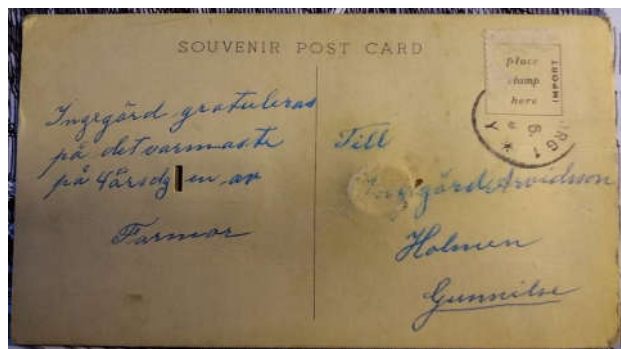 SOUVENIR POST CARD
place
stamp
here
IMPORT
Ingegärd gratuleras
på det varmaste
på 4årsdg en av
Farmor
Till
Ingegärd Arvidsson
Holmen
Gunnilse